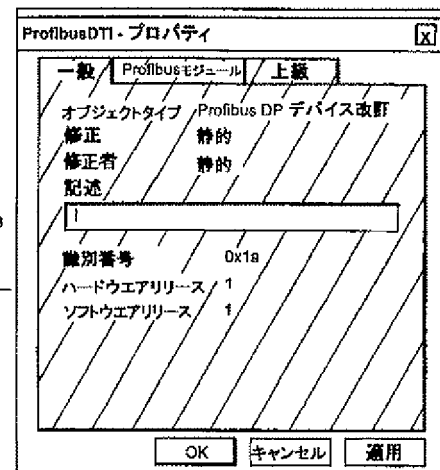 ProfibusDT1 - プロパティ X
一般 Profibusモジュール 上級
オブジェクトタイプ Profibus DP デバイス改訂
修正 静的
修正者 静的
記述
識別番号 0x1a
ハードウエアリリース 1
ソフトウエアリリース 1
OK キャンセル 適用